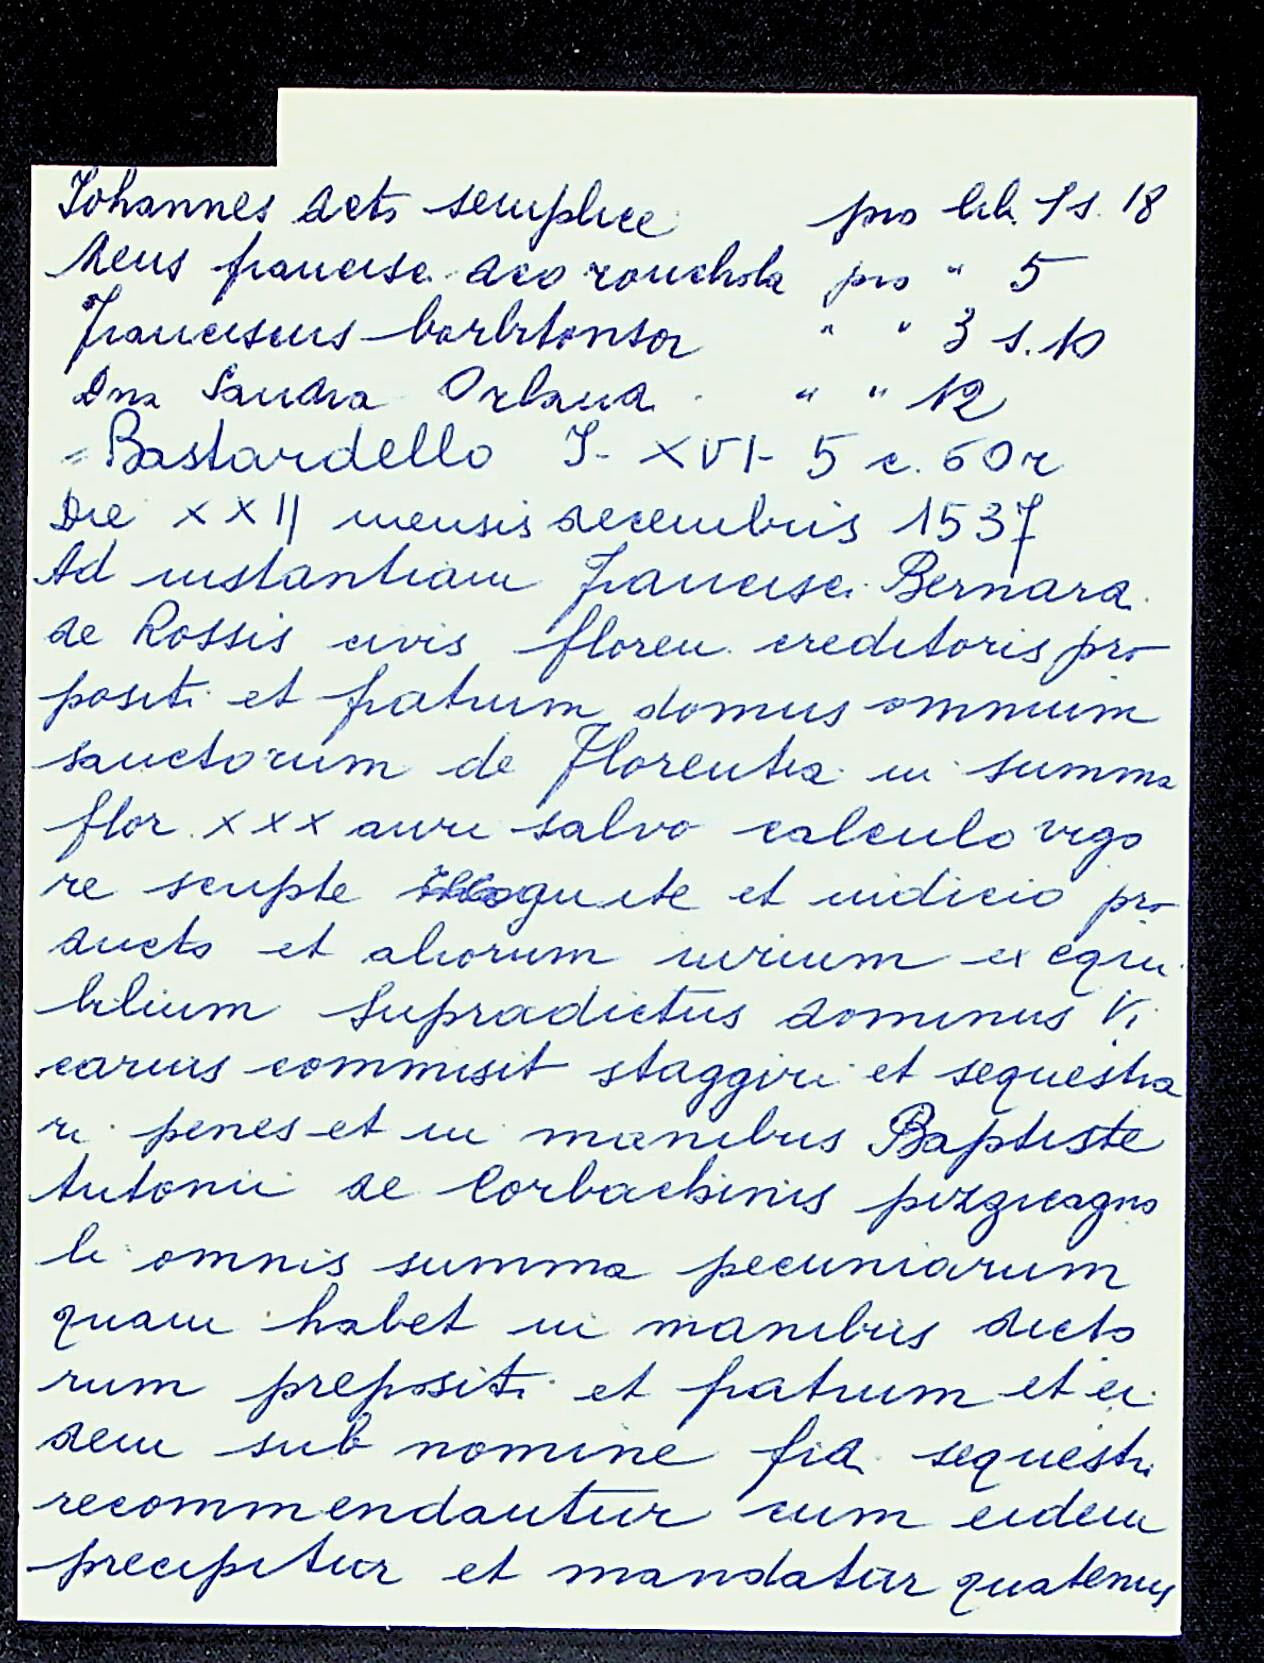 Johannes dcto semplice pro lib. 1 s. 18
Meus francisc. aco ronchola pro " 5
franciscus barbitonsor " " 3 s. 10
Dna Sandra Orland. " " 12
= Bastardello I- XVI- 5 c. 60r
Die XXII mensis decembris 1537
Ad instantiam francisci Bernard.
de Rossis civis floren. creditoris pro
positi et fratrum domus omnium
sanctorum de Florentia in summa
flor. XXX auri salvo calculo vigo
re scripte recognite et iudicio pro
ducto et aliorum iurium exequi
bilium Supradictus dominus Vi
carius commisit staggiri et sequestra
ri penes et in manibus Baptiste
Antonii de Corbachinis pizzicagno
li omnis summa pecuniarum
quam habet in manibus dicto
rum prepositi et fratrum et ei
dem sub nomine fid. sequestri
recommendantur cum eidem
precipitur et mandatur quatenus